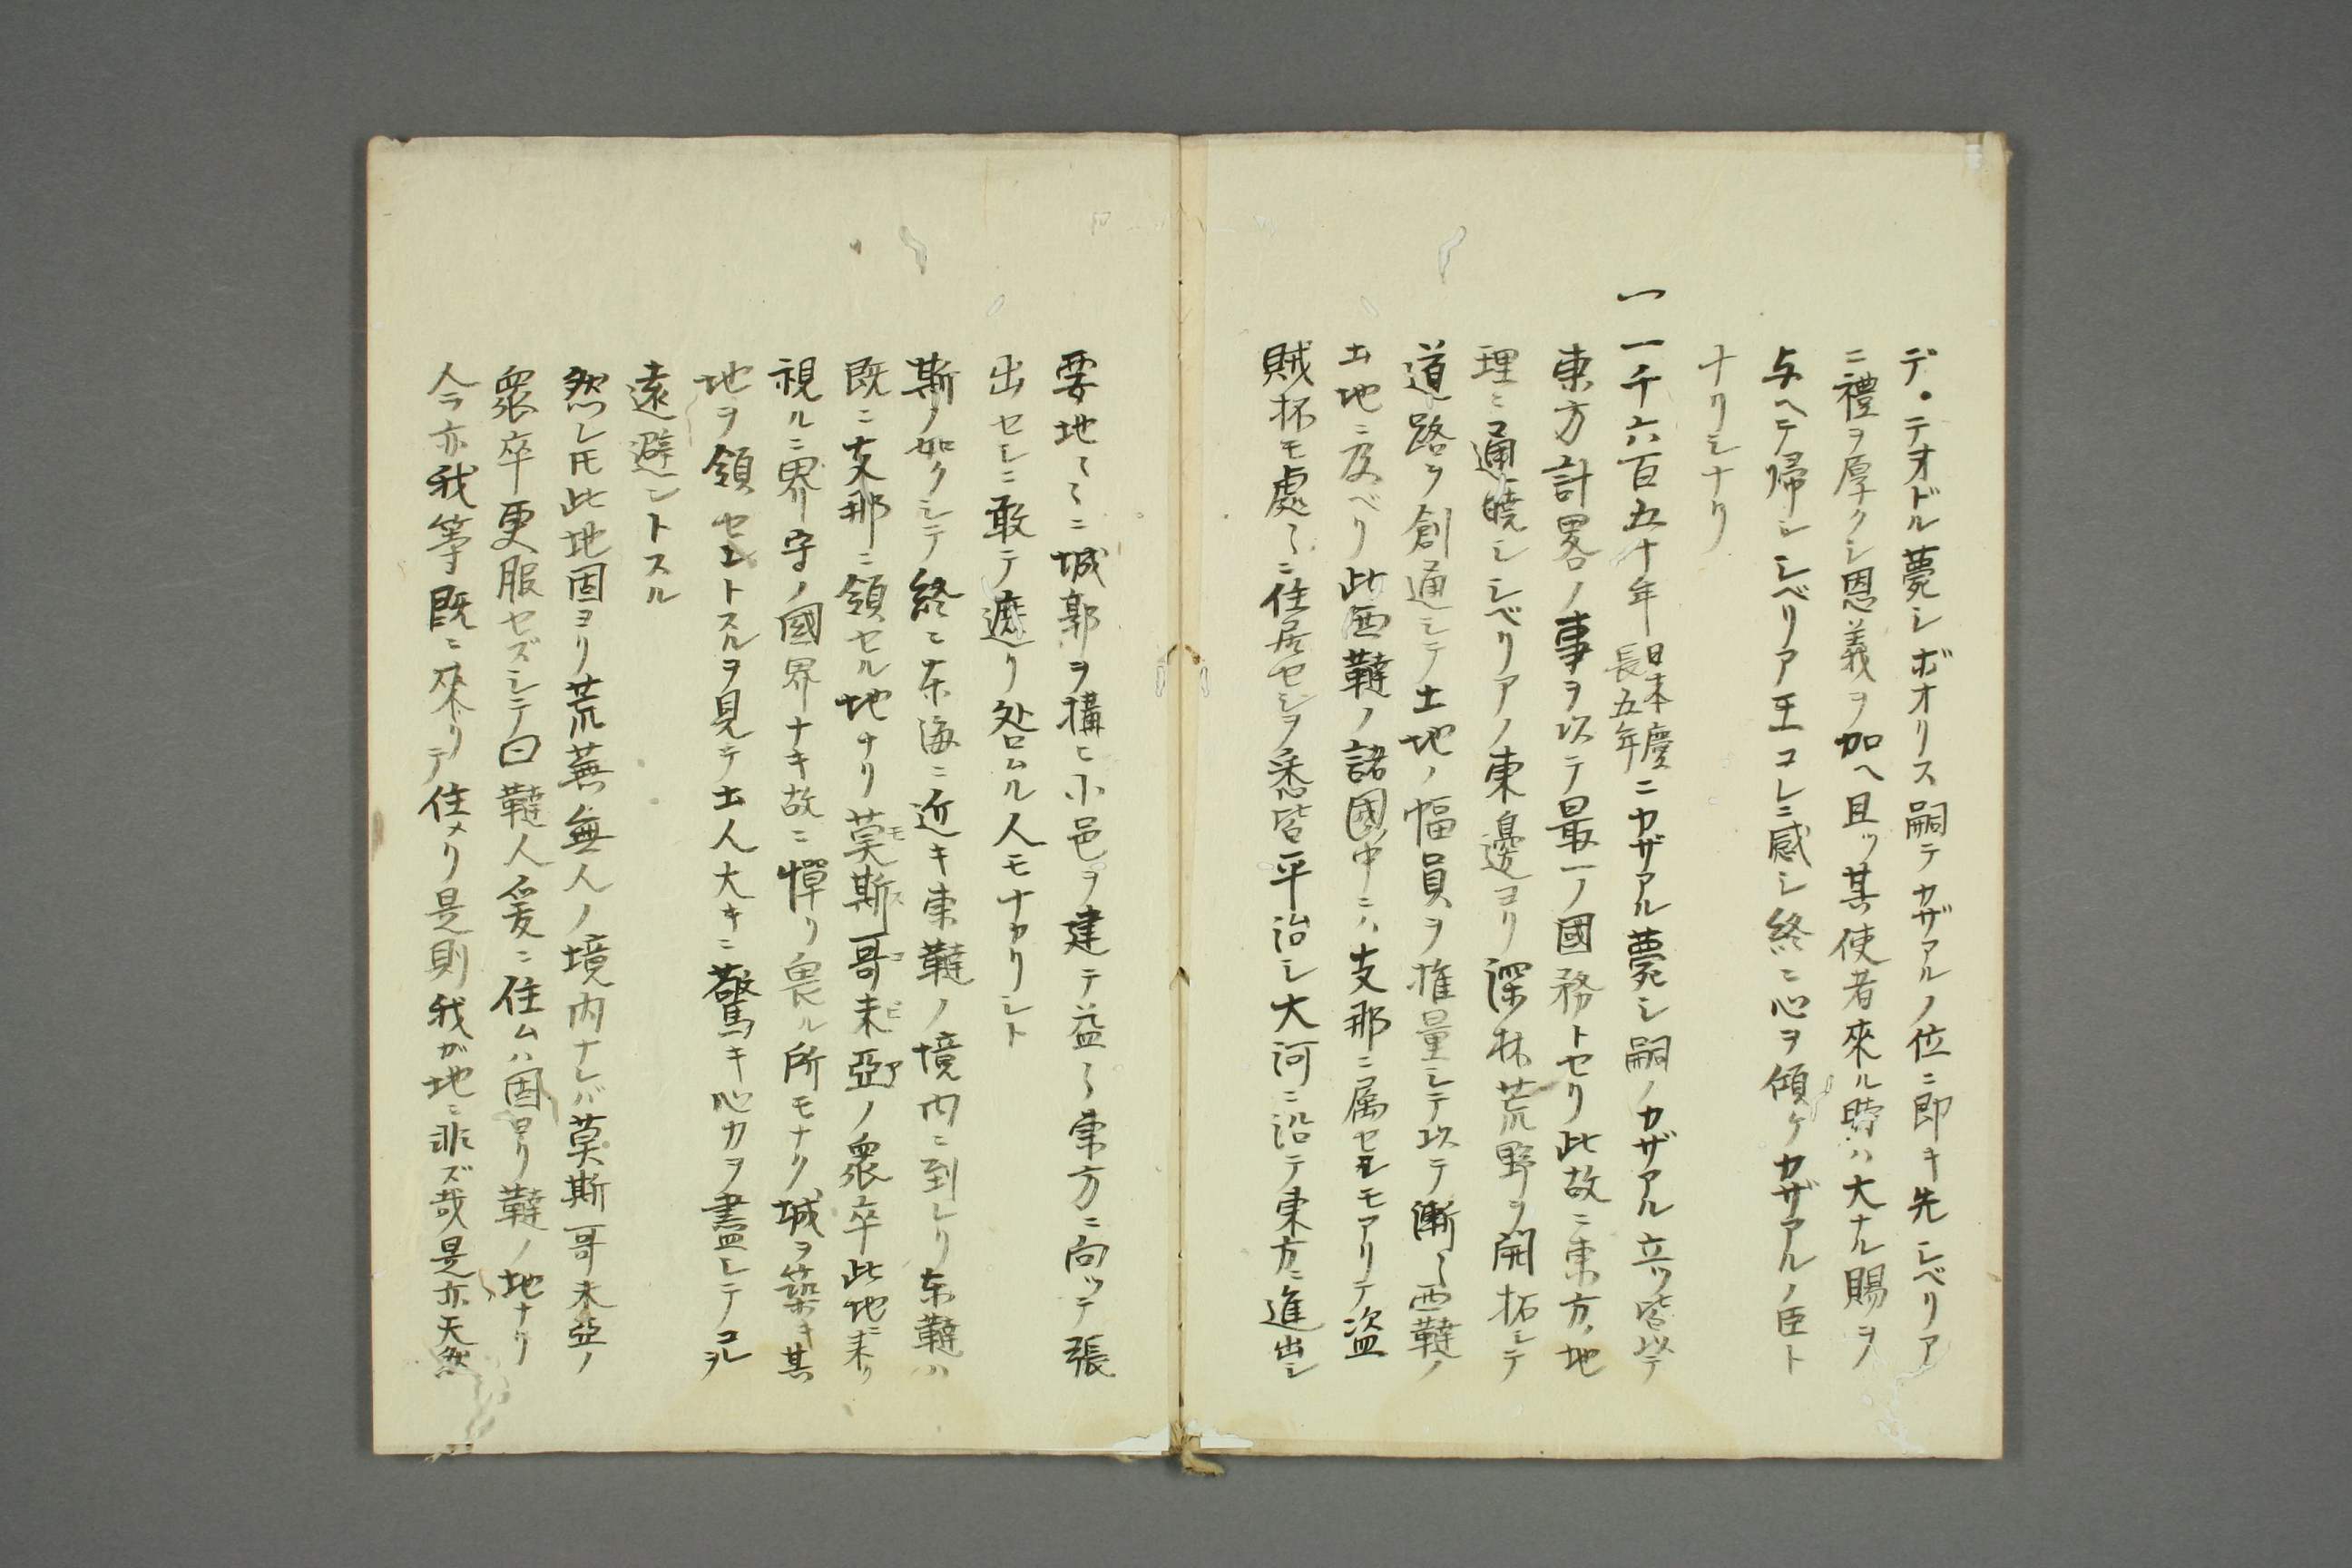 デ・テオドル薨シボオリス嗣テカザアルノ位ニ即キ先シベリア
ニ禮ヲ厚クシ恩義ヲ加ヘ且ツ其使者來ル時ハ大ナル賜ヲ
与ヘテ帰シシベリア王コレニ感シ終ニ心ヲ傾ケカザアルノ臣ト
ナリシナリ
一一千六百五十年日本慶長五年ニカザアル薨シ嗣ノカザアル立ツ皆以テ
東方計畧ノ事ヲ以テ最一ノ國務トセリ此故ニ東方ノ地
理ニ通曉シシベリアノ東邊ヨリ深林荒野ヲ開拓シテ
道路ヲ創通シテ土地ノ幅員ヲ推量シテ以テ漸〻西韃ノ
土地ニ及ベリ此西韃ノ諸國中ニハ支那ニ属セルモアリテ盜
賊抔モ處〻ニ住居セシヲ悉皆平治シ大河ニ沿テ東方ニ進出シ
要地〻〻ニ城郭ヲ構ヒ小邑ヲ建テ益〻東方ニ向ッテ張
出セシニ敢テ遮リ咎ムル人モナカリシト
斯ノ如クシテ終ニ東海ニ近キ東韃ノ境内ニ到レリ東韃ハ
既ニ支那ニ領セル地ナリ莫斯哥未亞モスコビアノ衆卒此地ニ来リ
視ルニ界守ノ國界ナキ故ニ憚リ畏ル所モナク城ヲ築キ其
地ヲ領セントスルヲ見テ土人大キニ驚キ心力ヲ盡シテコレヲ
遠避ントスル
然レ𪜈此地固ヨリ荒蕪無人ノ境内ナレバ莫斯哥未亞ノ
衆卒更服セズシテ曰韃人爰ニ住ムハ固ヨリ韃ノ地ナリ
今亦我等既ニ來リテ住メリ是則我が地ニ非ズ哉是亦天然